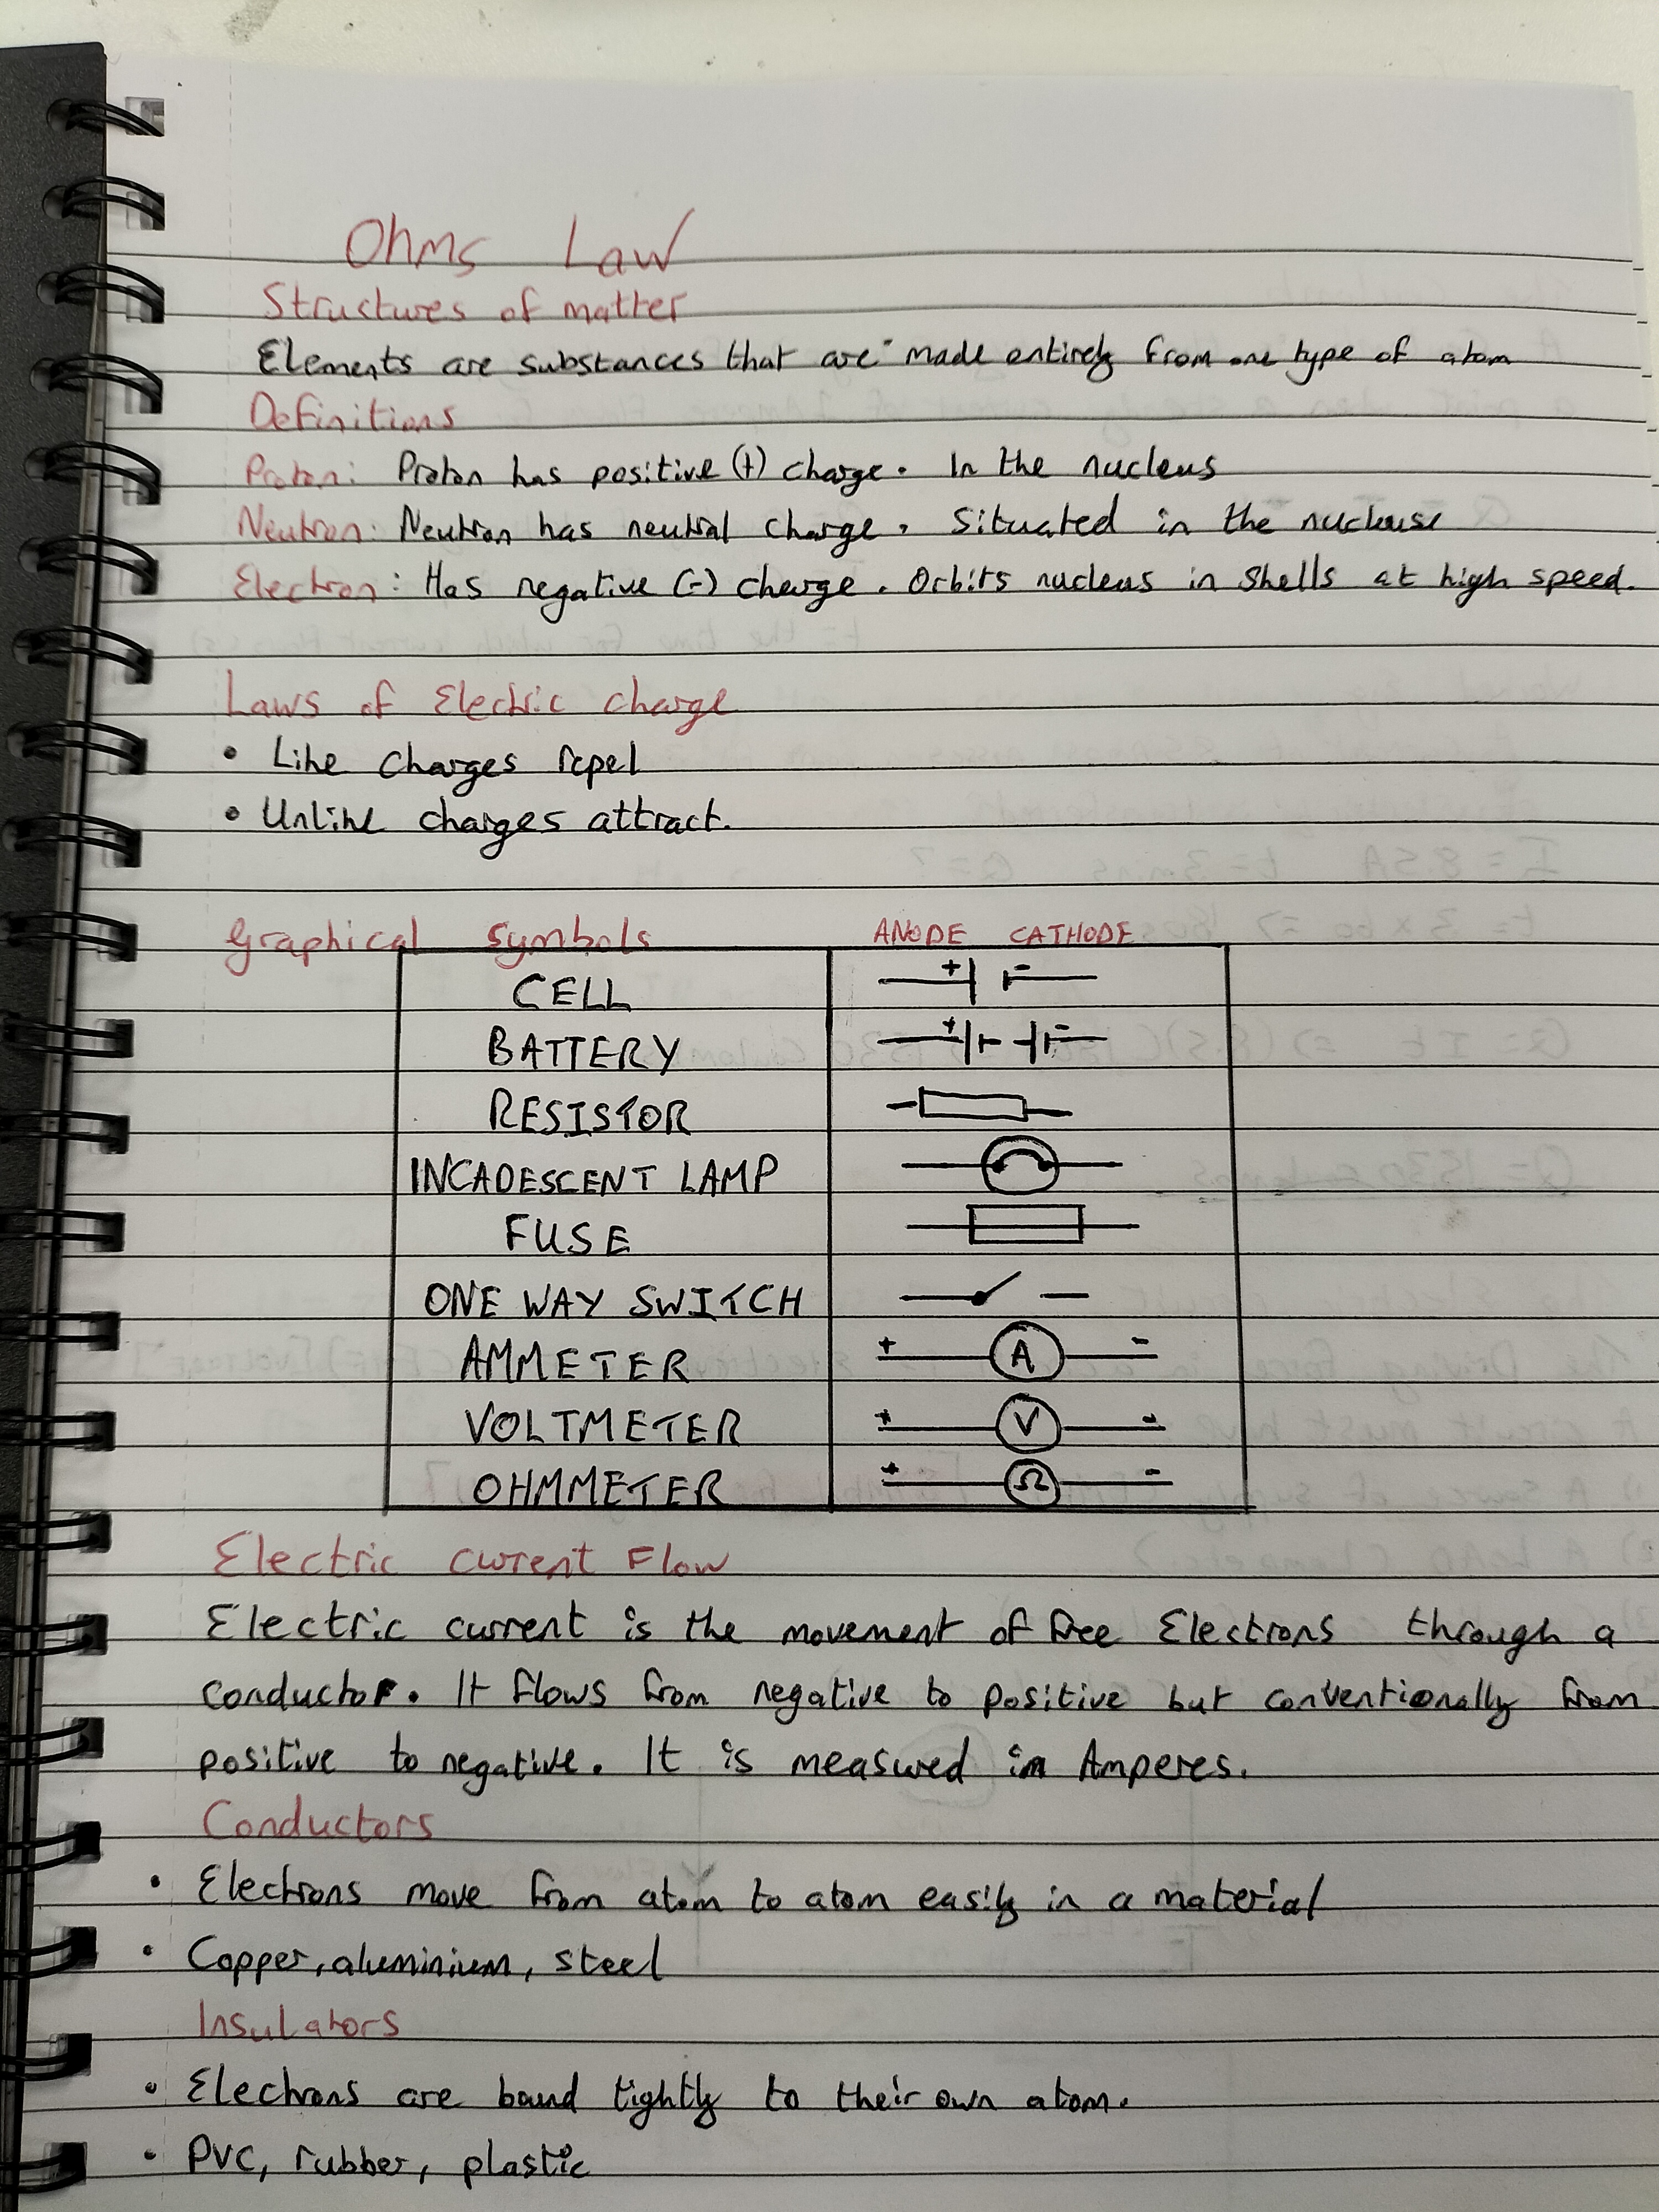 Ohms Law
Structures of matter
Elements are substances that are made entirely from one type of atom
Definitions
Proton: Proton has positive (+) charge. In the nucleus
Neutron: Neutron has neutral charge. Situated in the nucleuse
Electron: Has negative (-) charge. Orbits nucleus in shells at high speed.
Laws of Electric charge
• Like charges repel
• Unlike charges attract.
Graphical symbols ANODE CATHODE
CELL + -
BATTERY + -
RESISTOR
INCADESCENT LAMP
FUSE
ONE WAY SWITCH
AMMETER + A -
VOLTMETER + V -
OHMMETER + Ω -
Electric current Flow
Electric current is the movement of free Electrons through a
conductor. It flows from negative to positive but conventionally from
positive to negative. It is measured in Amperes.
Conductors
• Electrons move from atom to atom easily in a material
• Copper, aluminium, steel
Insulators
• Electrons are bound tightly to their own atom.
• PVC, rubber, plastic